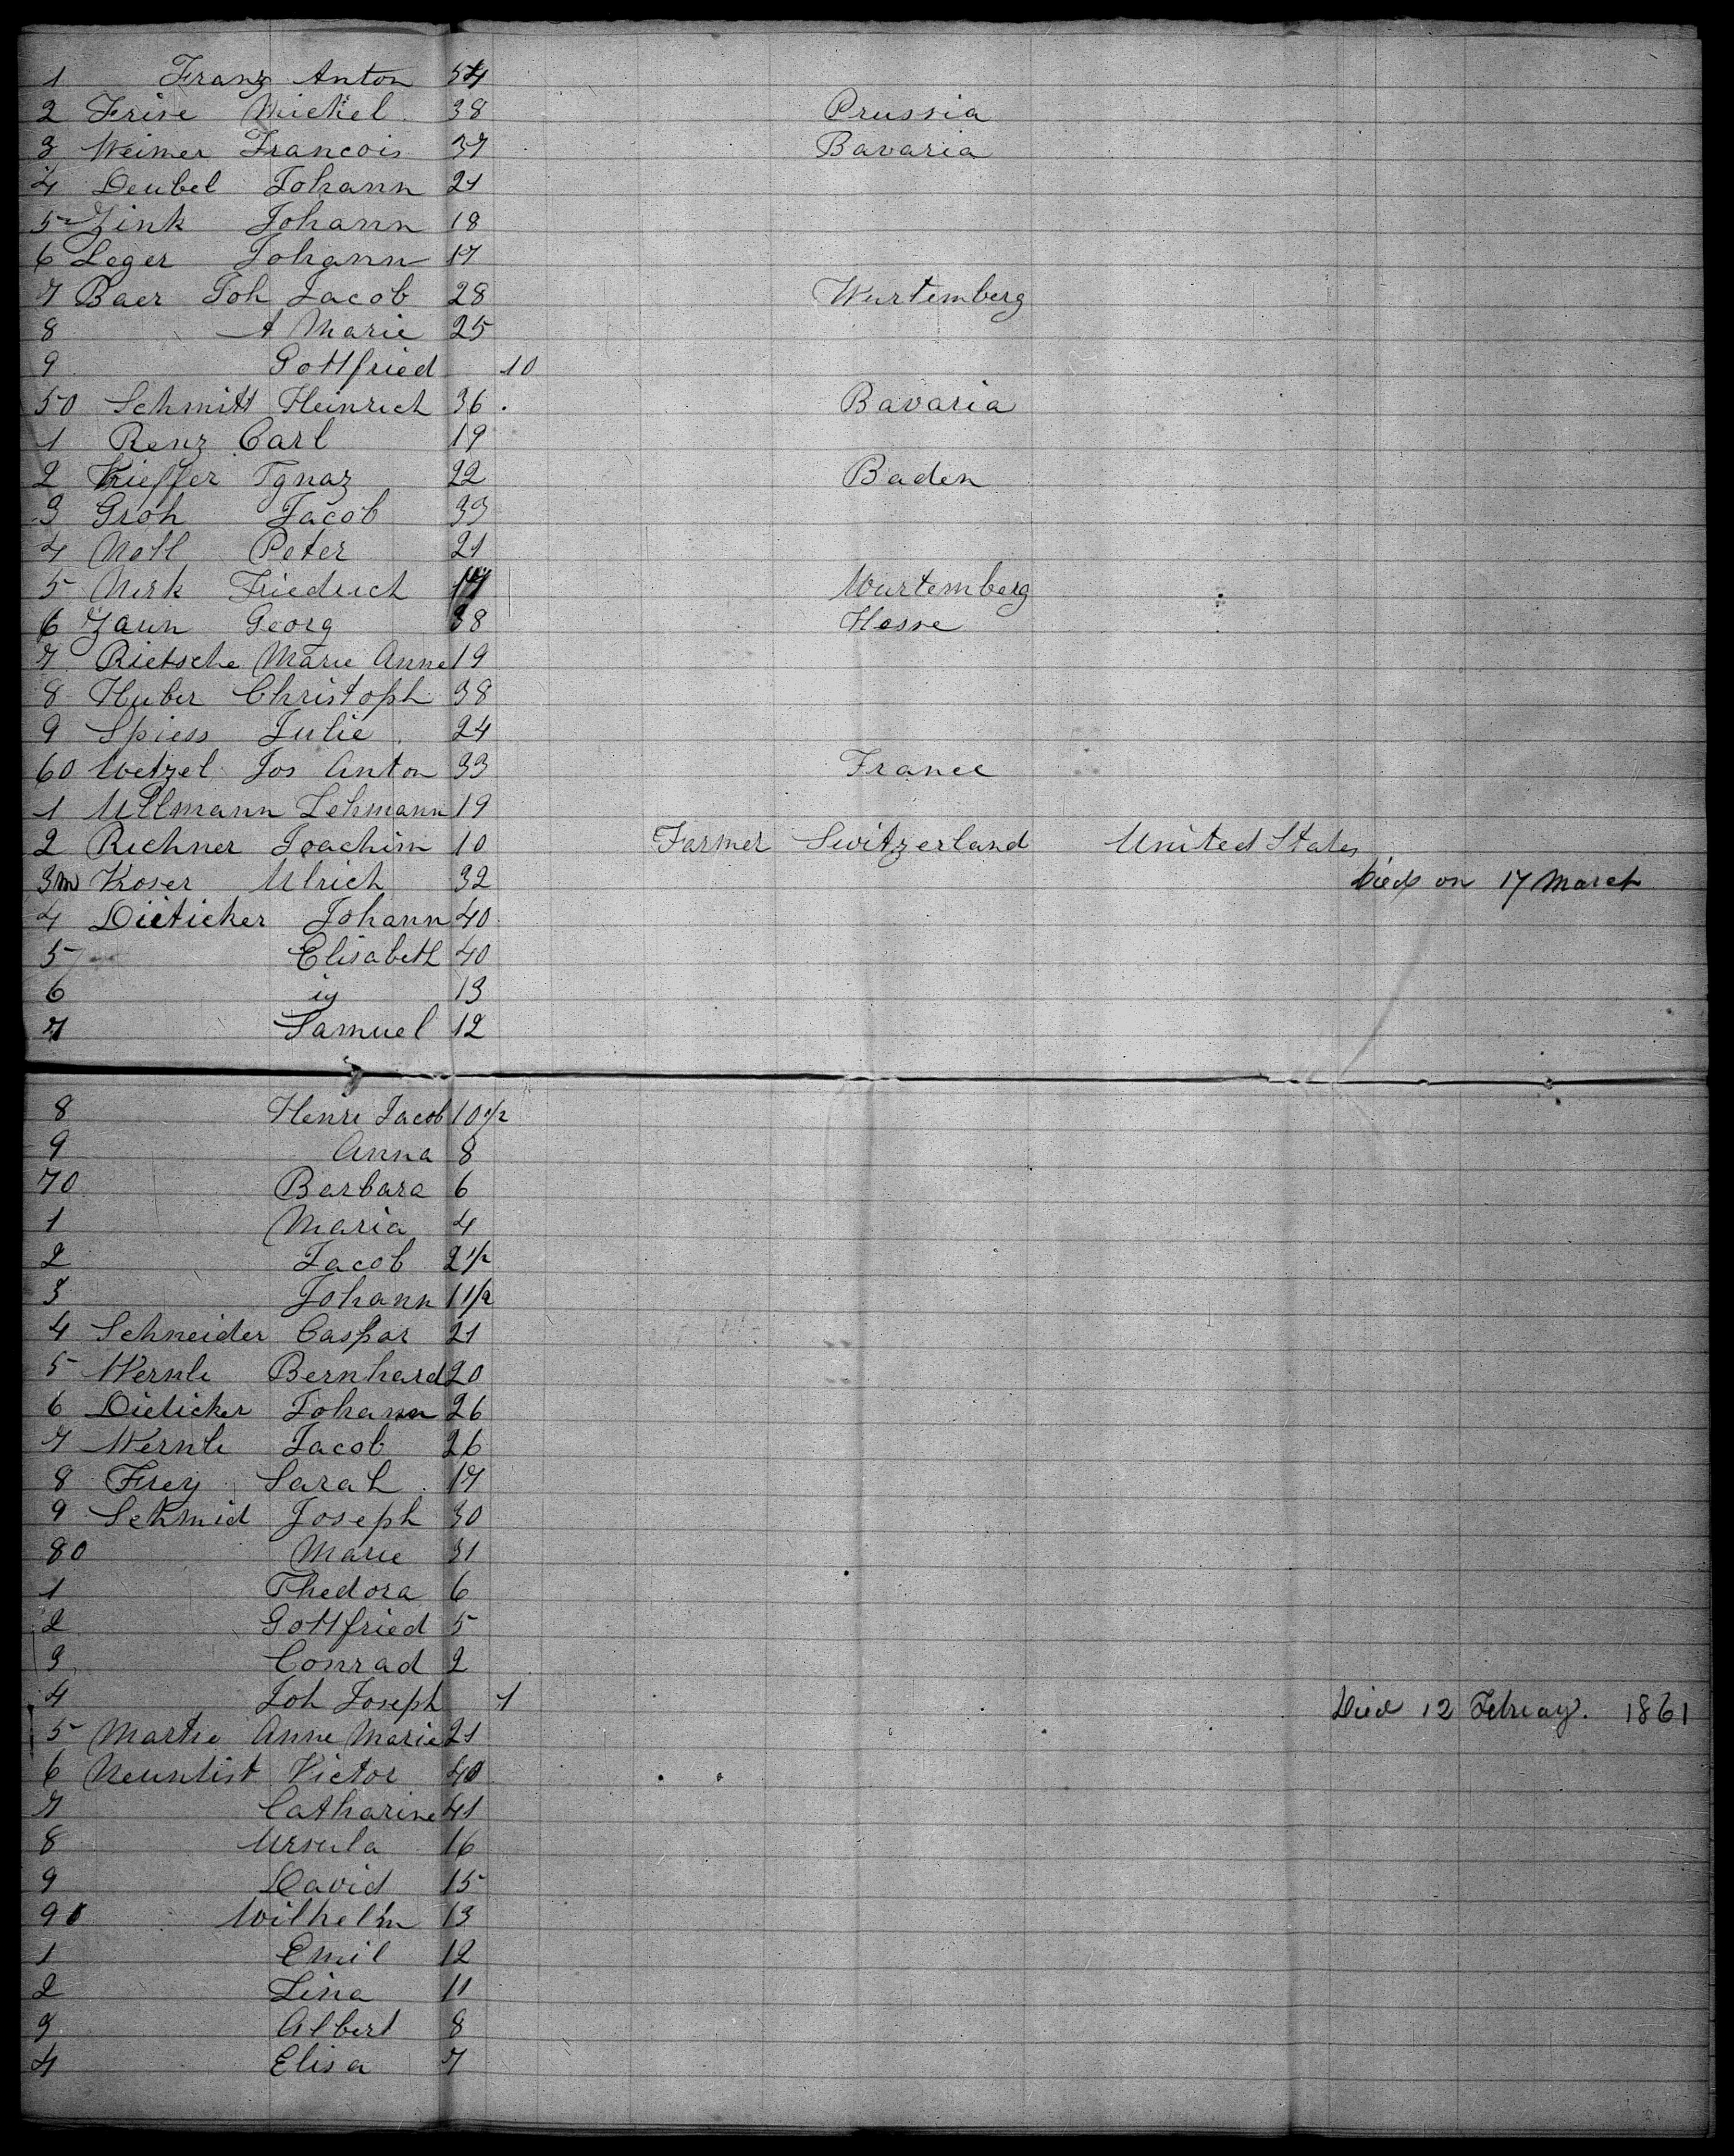 1 Franz Anton 54
2 Frise Michel 38 Prussia
3 Weimer Francois 37 Bavaria
4 Deubel Johann 21
5 Zink Johann 18
6 Leger Johann 17
7 Baer Joh Jacob 28 Wurtemberg
8 A Marie 25
9 Gottfried 10
50 Schmitt Heinrich 36 Bavaria
1 Renz Carl 19
2 Kieffer Ignaz 22 Baden
3 Groh Jacob 33
4 Noll Peter 21
5 Merk Friedrich 17 Wurtemberg
6 Zaun Georg 38 Hesse
7 Rietsche Marie Anne 19
8 Huber Christoph 38
9 Spiess Julie 24
60 Wetzel Jos Anton 33 France
1 Ullmann Lehmann 19
2 Richner Joachim 10 Farmer Switzerland United States
3m Koser Ulrich 32 Died on 17 March
4 Dieticker Johann 40
5 Elisabeth 40
6 ig 13
7 Samuel 12
8 Henri Jacob 10 1/2
9 Anna 8
70 Barbara 6
1 Maria 4
2 Jacob 2 1/2
3 Johann 1 1/2
4 Schneider Caspar 21
5 Wernli Bernhard 20
6 Dieticker Johann 26
7 Wernli Jacob 26
8 Frey Sarah 17
9 Schmid Joseph 30
80 Marie 31
1 Thedora 6
2 Gottfried 5
3 Conrad 2
4 Joh Joseph 1 Died 12 Febuay. 1861
5 Marthe Anne Marie 21
6 Neuntist Victor 40
7 Catharine 41
8 Ursula 16
9 David 15
90 Wilhelm 13
1 Emil 12
2 Lina 11
3 Albert 8
4 Elisa 7